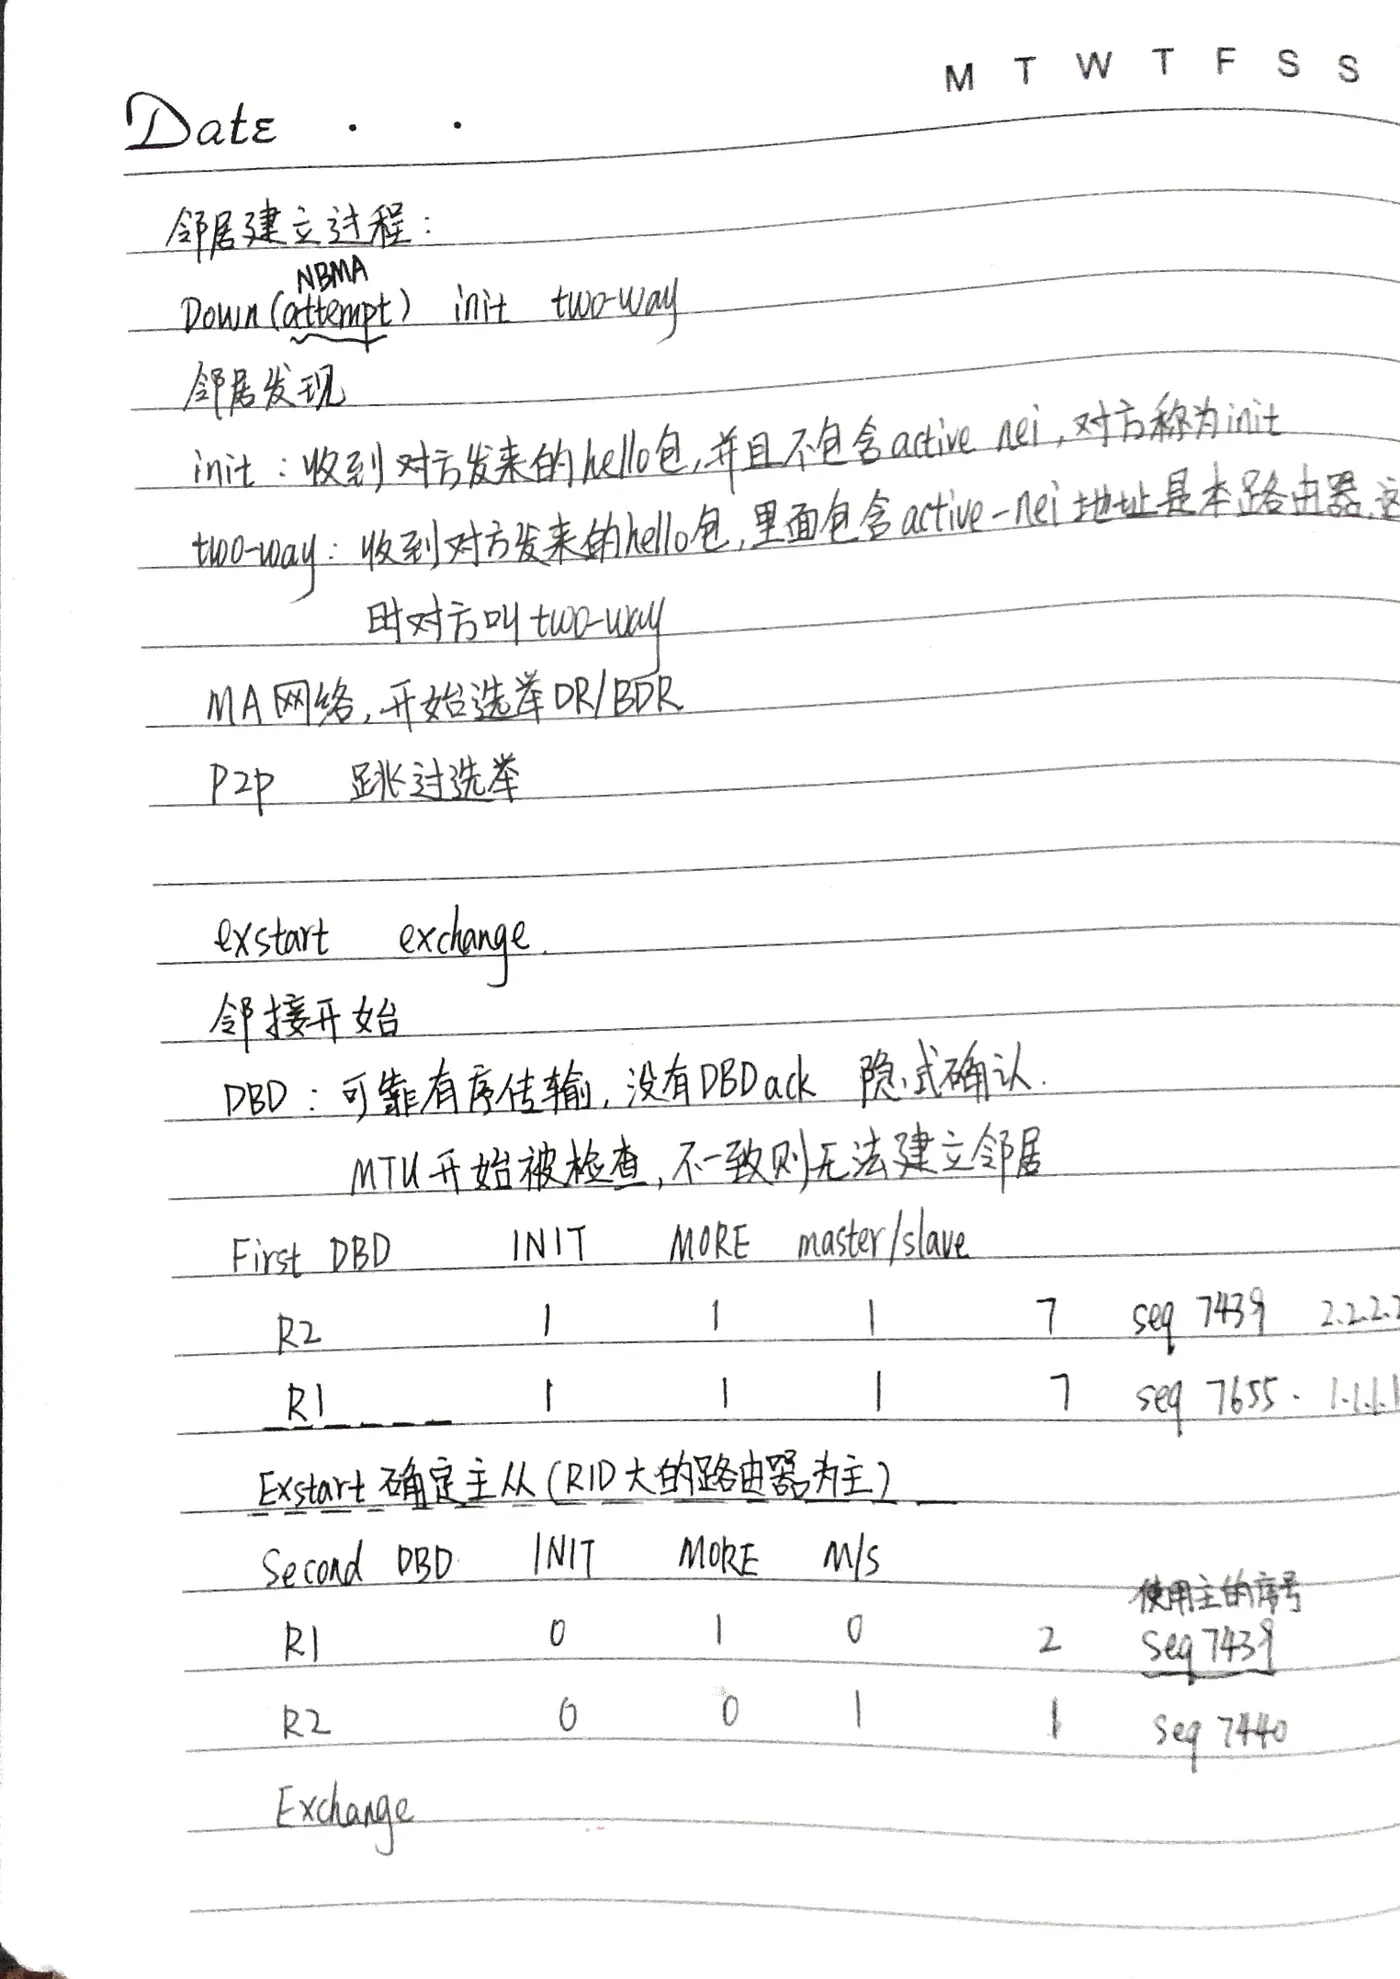 M T W T F S S
Date . .
邻居建立过程:
NBMA
Down(attempt) init two-way
邻居发现
init:收到对方发来的hello包,并且不包含active nei,对方称为init
two-way:收到对方发来的hello包,里面包含active-nei地址是本路由器,这
时对方叫two-way
MA网络,开始选举DR/BDR
P2P 跳过选举
exstart exchange.
邻接开始
DBD:可靠有序传输,没有DBD ack 隐式确认.
MTU开始被检查,不一致则无法建立邻居
First DBD INIT MORE master/slave
R2 1 1 1 7 seq 7439 2.2.2.2
R1 1 1 1 7 seq 7655. 1.1.1.1
Exstart 确定主从(RID大的路由器为主)
Second DBD. INIT MORE M/S
使用主的序号
R1 0 1 0 2 seq 7439
R2 0 0 1 1 seq 7440
Exchange